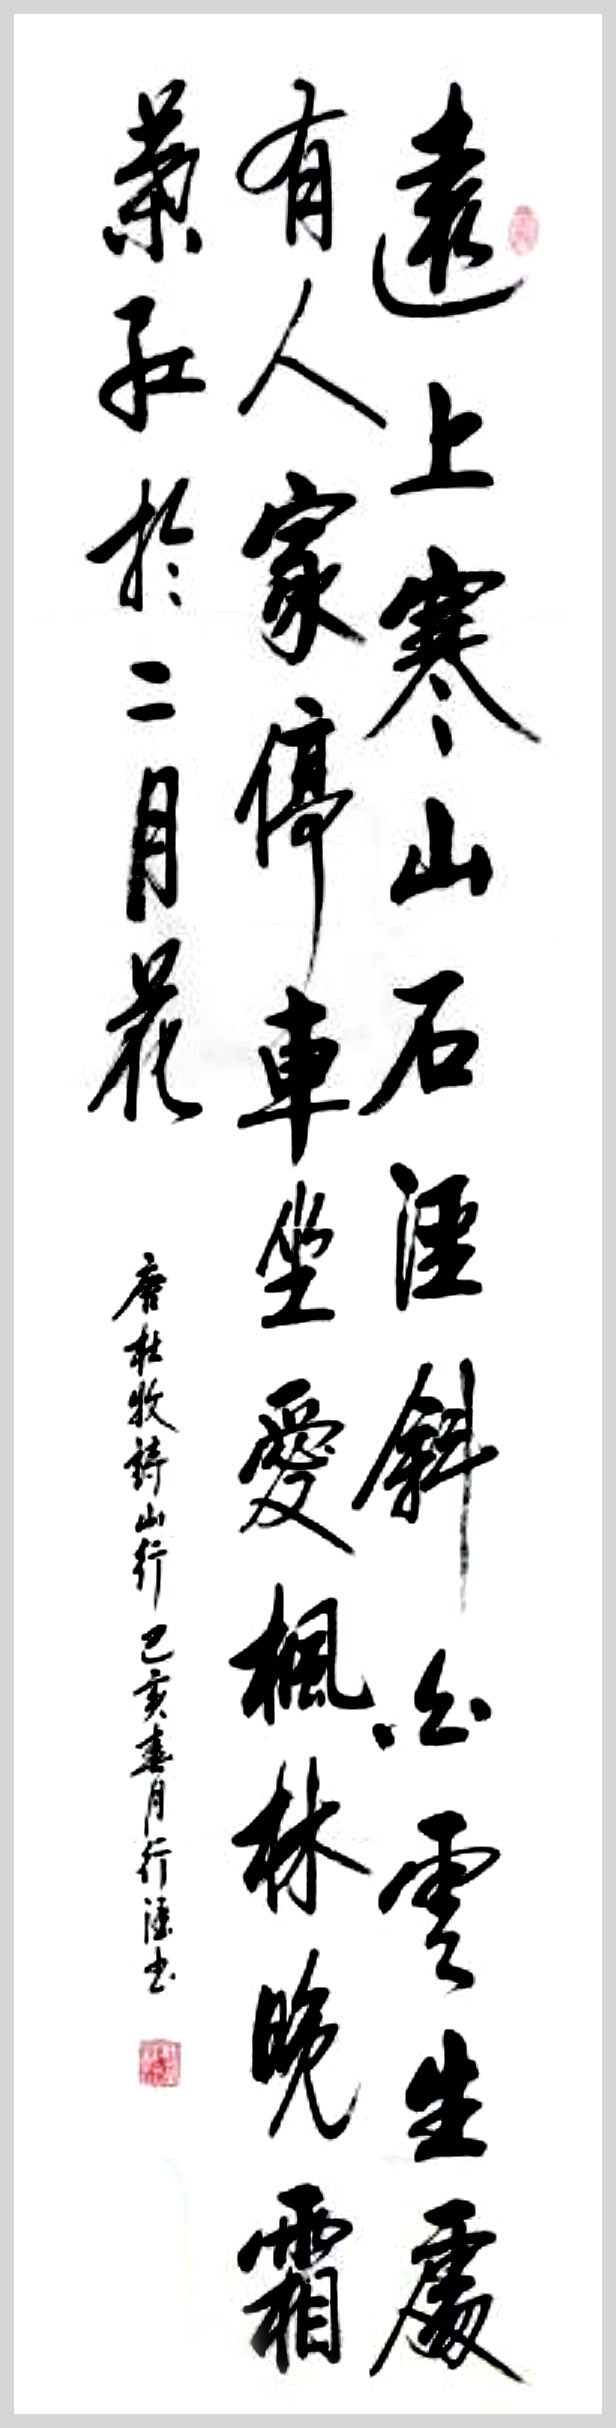 遠上寒山石淫斜白雲生處
有人家停車坐愛楓林晚霜
葉紅於二月花
唐杜牧詩山行己亥春月行涯书